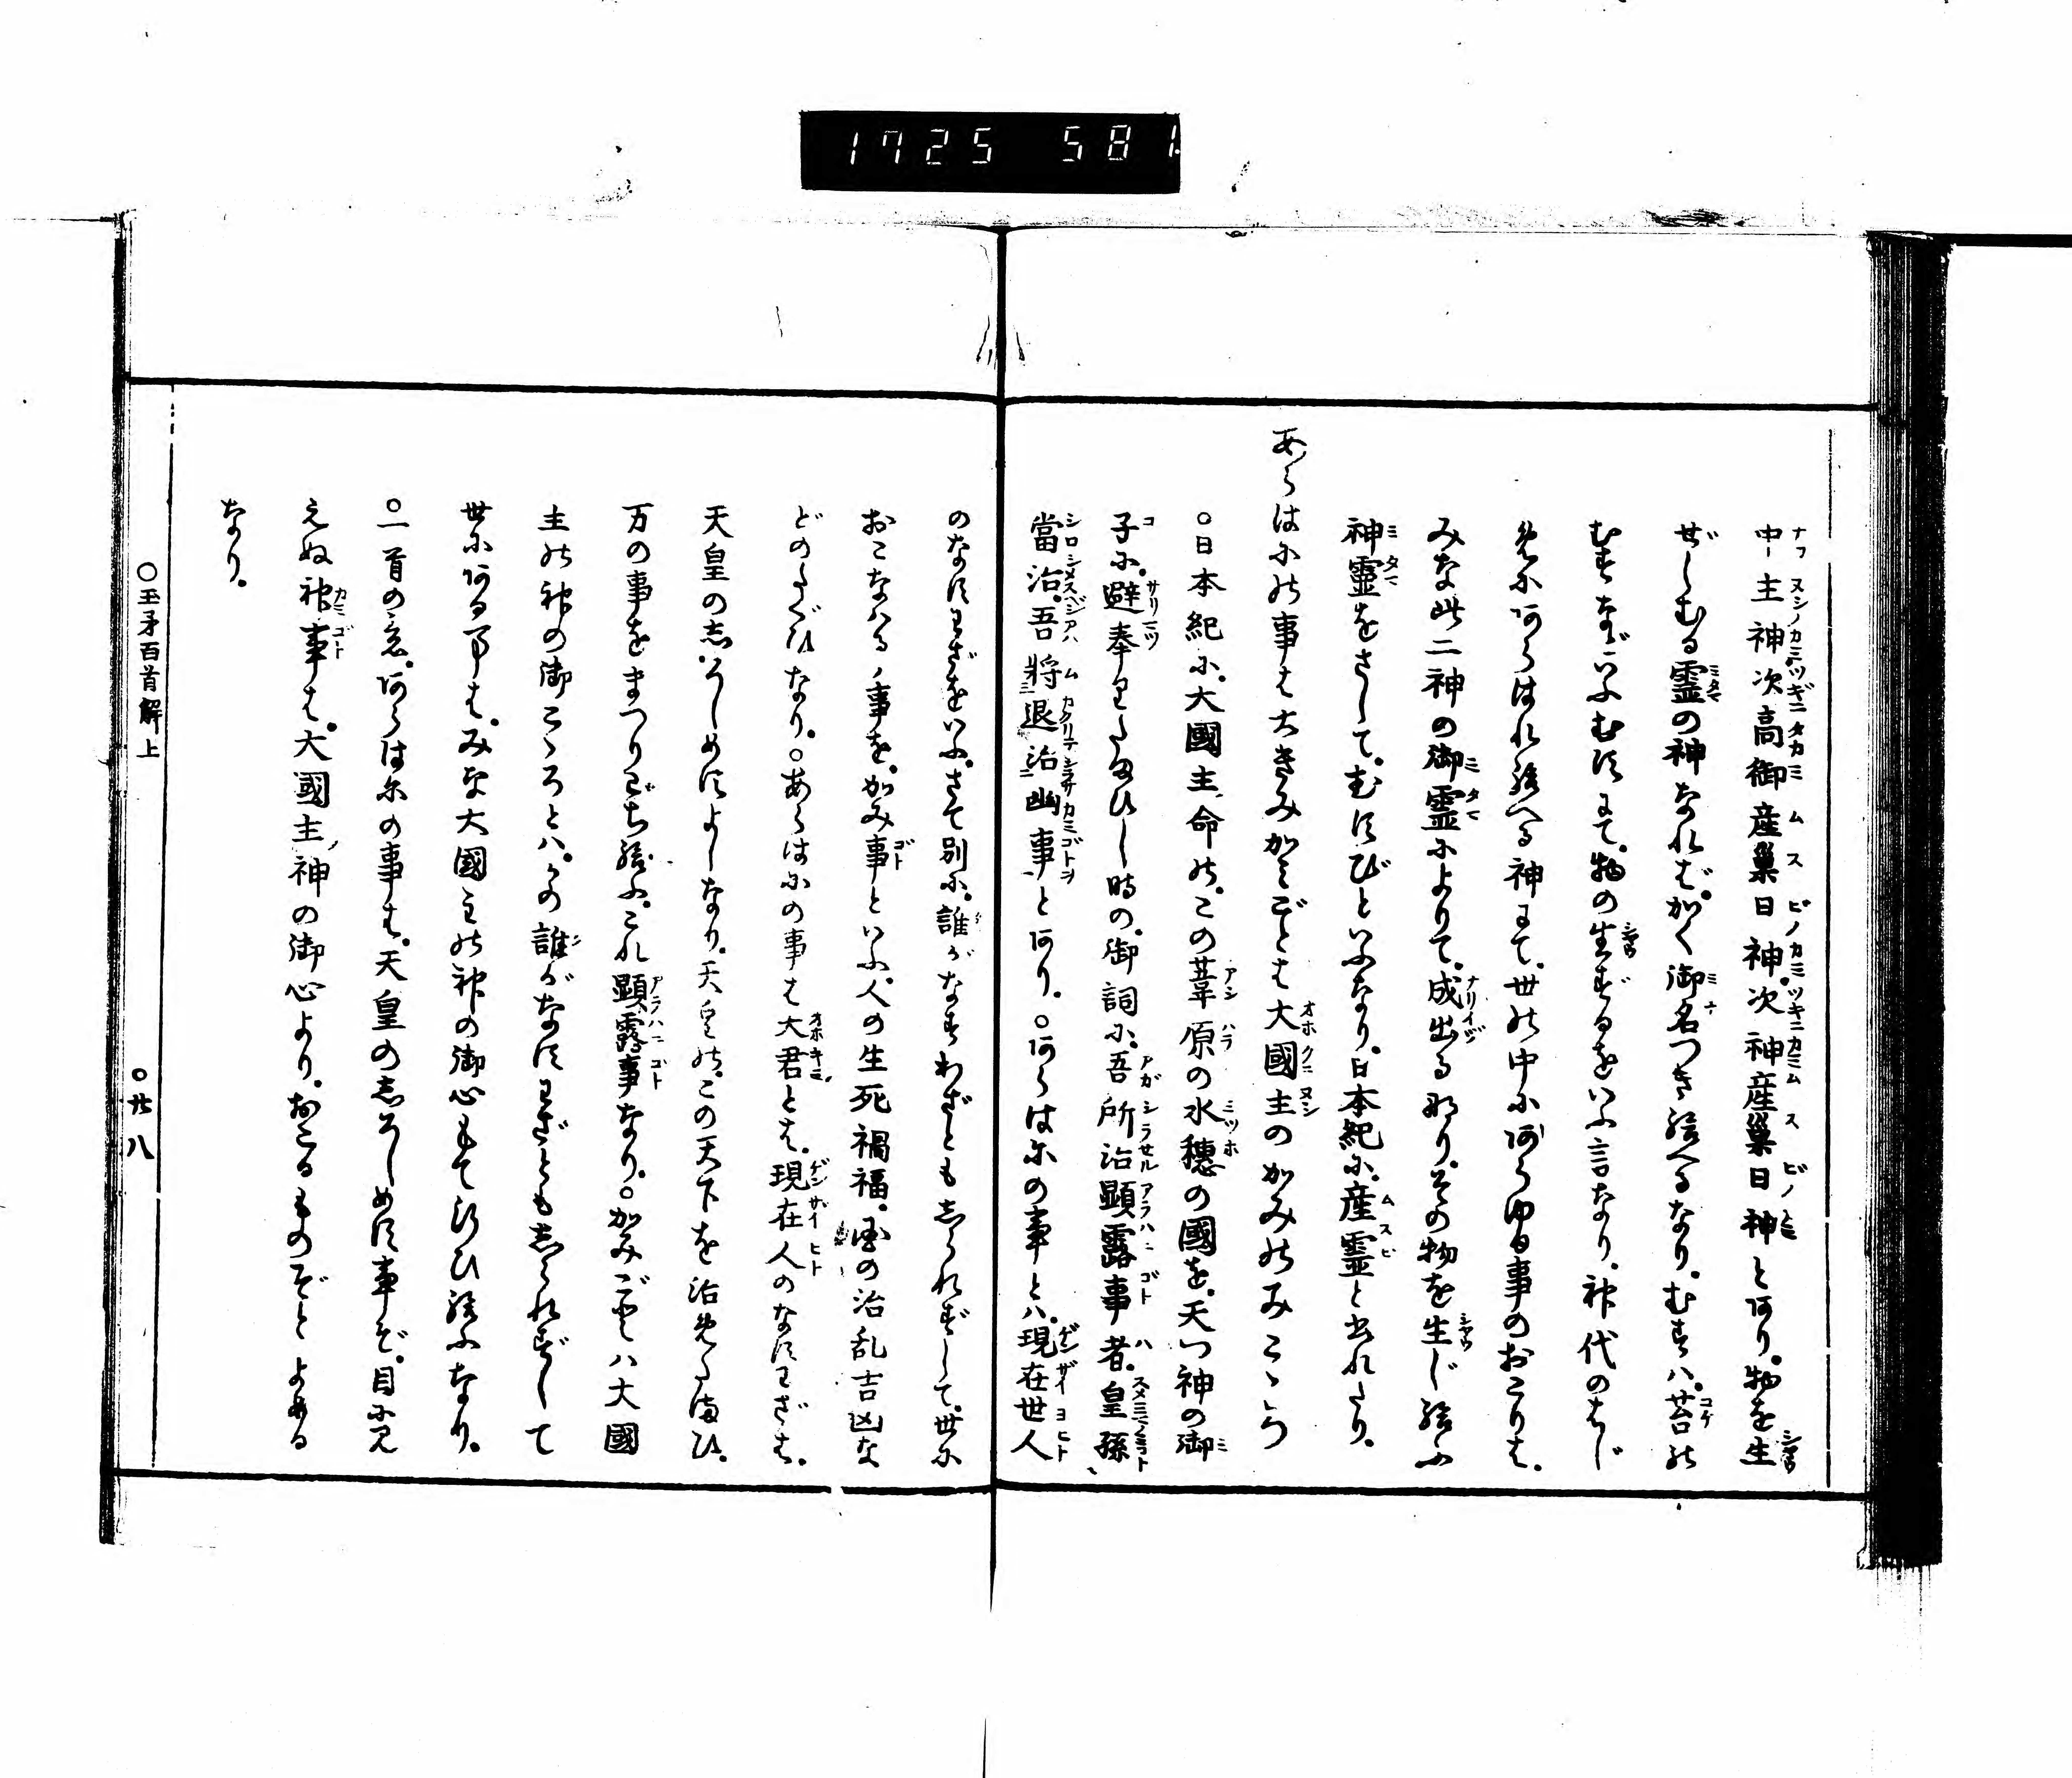 1725 581
中主神次高御産巣日神。次神産巣日神とあり。物を生
ぜしむる霊の神なれば。かく御名つき給へるなり。むすハ。苔の
むすなどいふむすにて。物の生ずるをいふ言なり。神代のはじ
めにあらはれ給へる神にて。世の中にあらゆる事のおこりは。
みな此二神の御霊によりて。成出る也り。その物を生じ給ふ
神霊をさして。むすびといふなり。日本紀に。産霊と書れたり。
あらはにの事は大きみかみごとは大國主のかみのみこゝろ
○日本紀に。大國主命の。この葦原の水穂の國を。天つ神の御
子に。避奉りたまひし時の。御詞に。吾所治顕露事者。皇孫
當治。吾將退治幽事とあり。○あらはにの事とハ。現在世人
のなすわざをいふ。さて別に。誰がなすわざとも志られずして。世に
おこなハるゝ事を。かみ事といふ。人の生死禍福。國の治乱吉凶な
どのたぐひなり。○あらはにの事は大君とは。現在人のなすわざは。
天皇の志ろしめすよしなり。天皇の。この天下を治めたまひ。
万の事をまつりごち給ふ。これ顕露事なり。○かみごとハ大國
主の神の御こゝろとハ。かの誰がなすわざとも志られずして
世にある事は。みな大國主の神の御心もて行ひ給ふなり。
○一首の意。あらはにの事は。天皇の志ろしめす事ぞ。目に見
えぬ神事は。大國主ノ神の御心より。おこるものぞとよめる
なり。
○玉矛百首解上
○廿八